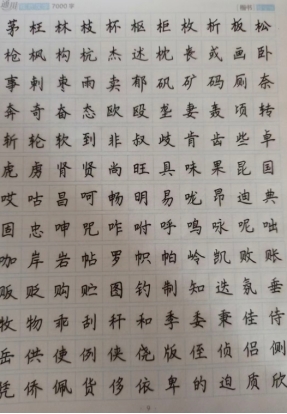 7000字
楷书
茅 枉 林 枝 杯 枢 柜 枚 析 板 松
枪 枫 构 杭 杰 述 枕 丧 或 画 卧
事 刺 枣 雨 卖 郁 矾 矿 码 厕 奈
奔 奇 奋 态 欧 殴 垄 妻 轰 顷 转
斩 轮 软 到 非 叔 歧 肯 齿 些 卓
虎 虏 肾 贤 尚 旺 具 味 果 昆 国
哎 咕 昌 呵 畅 明 易 咙 昂 迪 典
固 忠 呻 咒 咋 咐 呼 鸣 咏 呢 咄
咖 岸 岩 帖 罗 帜 帕 岭 凯 败 账
贩 贬 购 贮 图 钓 制 知 迭 氛 垂
牧 物 乖 刮 秆 和 季 委 秉 佳 侍
岳 供 使 例 侠 侥 版 侄 侦 侣 侧
凭 侨 佩 货 侈 依 卑 的 迫 质 欣